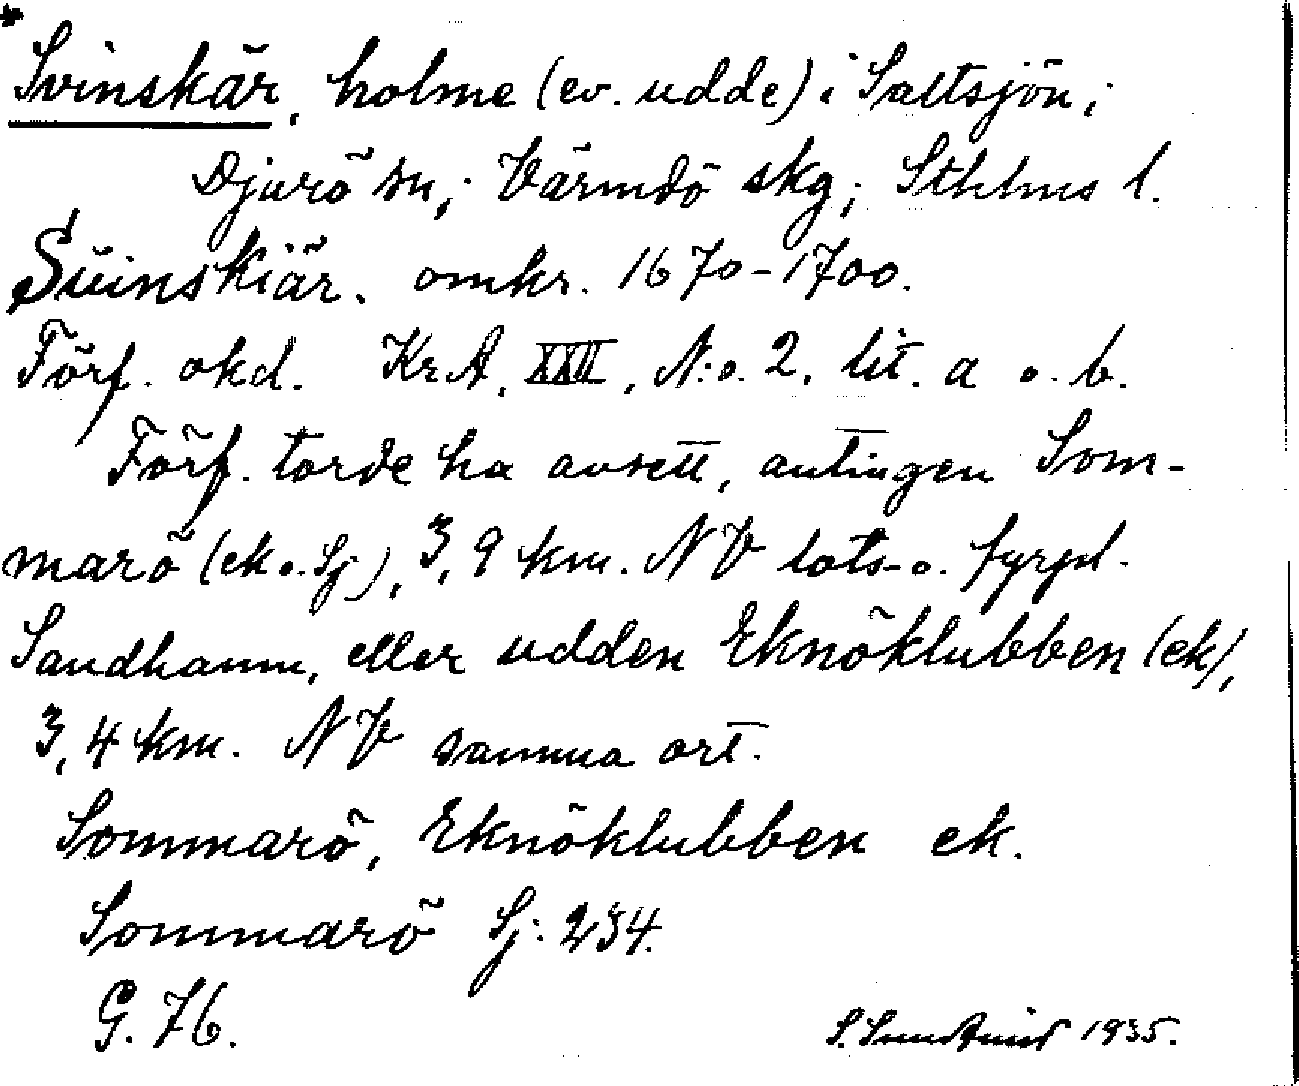 *
Svinskär, holme (ev. udde) i Saltsjön;
Djurö sn; Värmdö skg; Sthlms l.
Süinskiär. omkr. 1670-1700.
Förf. okd. KrA. XXII, N:o. 2. lit. a o. b.
Förf. torde ha avsett, antingen Som-
marö (ek o. Sj), 3,9 km. NV lots- o. fyrpl.
Sandhamn, eller udden Eknöklubben (ek),
3,4 km. NV samma ort.
Sommarö, Eknöklubben ek.
Sommarö Sj. 234.
G. 76.
S. 1935.